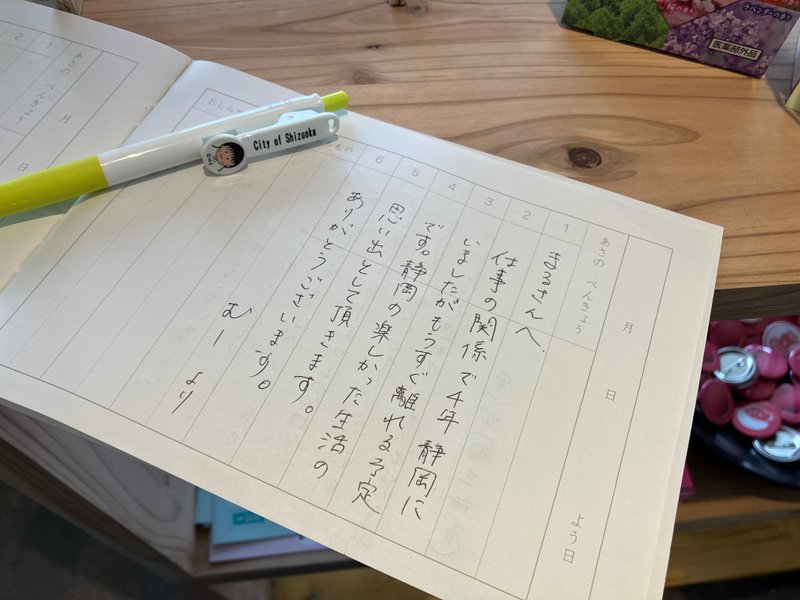 月 日 よう日
あさの べんきょう
1
2
3
4
5
6
もの
おしらせ
まるさんへ.
仕事の関係で4年 静岡に
いましたがもうすぐ離れる予定
です。静岡の楽しかった生活の
思い出として頂きます。
ありがとうございます。
むーより
City of Shizuoka
月
日
あさの べんきょう
1
2
桜の香り
ラベンダーの香り
医薬部外品